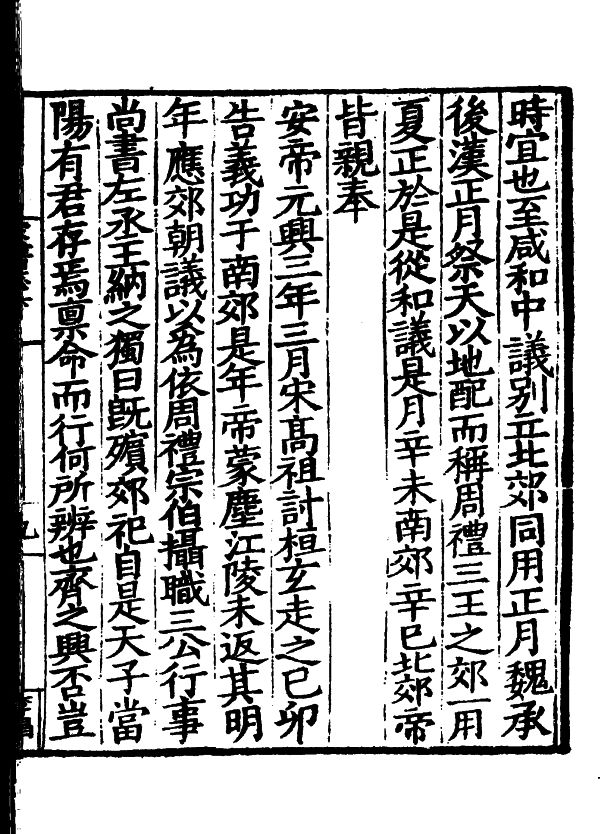 時宜也至咸和中議别立北郊同用正月魏承
後漢正月祭天以地配而稱周禮三王之郊一用
夏正於是從和議是月辛未南郊辛巳北郊帝
皆親奉
安帝元興三年三月宋髙祖討桓玄走之已卯
告義功于南郊是年帝蒙塵江陵未返其明
年應郊朝議以為依周禮宗伯攝職三公行事
尚書左丞王納之獨曰旣殯郊祀自是天子當
陽有君存焉禀命而行何所辨也齊之興否豈